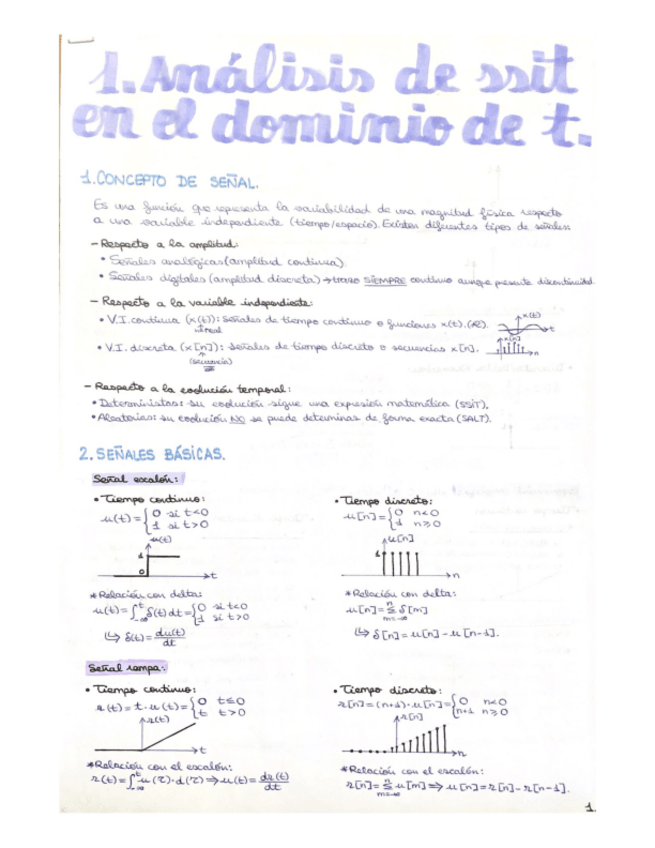 1. Análisis de ssit
en el dominio de t.
1. CONCEPTO DE SEÑAL.
Es una función que representa la variabilidad de una magnitud física respecto
a una variable independiente (tiempo/espacio). Existen diferentes tipos de señales:
- Respecto a la amplitud:
• Señales analógicas (amplitud continua)
• Señales digitales (amplitud discreta) → trazo SIEMPRE continuo aunque presente discontinuidad
- Respecto a la variable independiente:
• V.I. continua (x(t)): señales de tiempo continuo o funciones x(t).
x(t)
t
• V.I. discreta (x[n]): señales de tiempo discreto o secuencias x[n].
(secuencia)
x[n]
n
- Respecto a la evolución temporal:
• Deterministas: su evolución sigue una expresión matemática (SSIT).
• Aleatorias: su evolución NO se puede determinar de forma exacta (SALT).
2. SEÑALES BÁSICAS.
Señal escalón:
• Tiempo continuo:
u(t) = { 0 si t<0
1 si t>0
u(t)
1
0
t
* Relación con delta:
u(t) = ∫_{-∞}^{t} δ(t) dt = { 0 si t<0
1 si t>0
↳ δ(t) = du(t)/dt
• Tiempo discreto:
u[n] = { 0 n<0
1 n≥0
u[n]
1
n
* Relación con delta:
u[n] = Σ_{m=-∞}^{n} δ[m]
↳ δ[n] = u[n] - u[n-1].
Señal rampa:
• Tiempo continuo:
r(t) = t · u(t) = { 0 t≤0
t t>0
r(t)
t
* Relación con el escalón:
r(t) = ∫_{-∞}^{t} u(τ) · d(τ) ⇒ u(t) = dr(t)/dt
• Tiempo discreto:
r[n] = (n+1) · u[n] = { 0 n<0
n+1 n≥0
r[n]
n
* Relación con el escalón:
r[n] = Σ_{m=-∞}^{n} u[m] ⇒ u[n] = r[n] - r[n-1].
1.